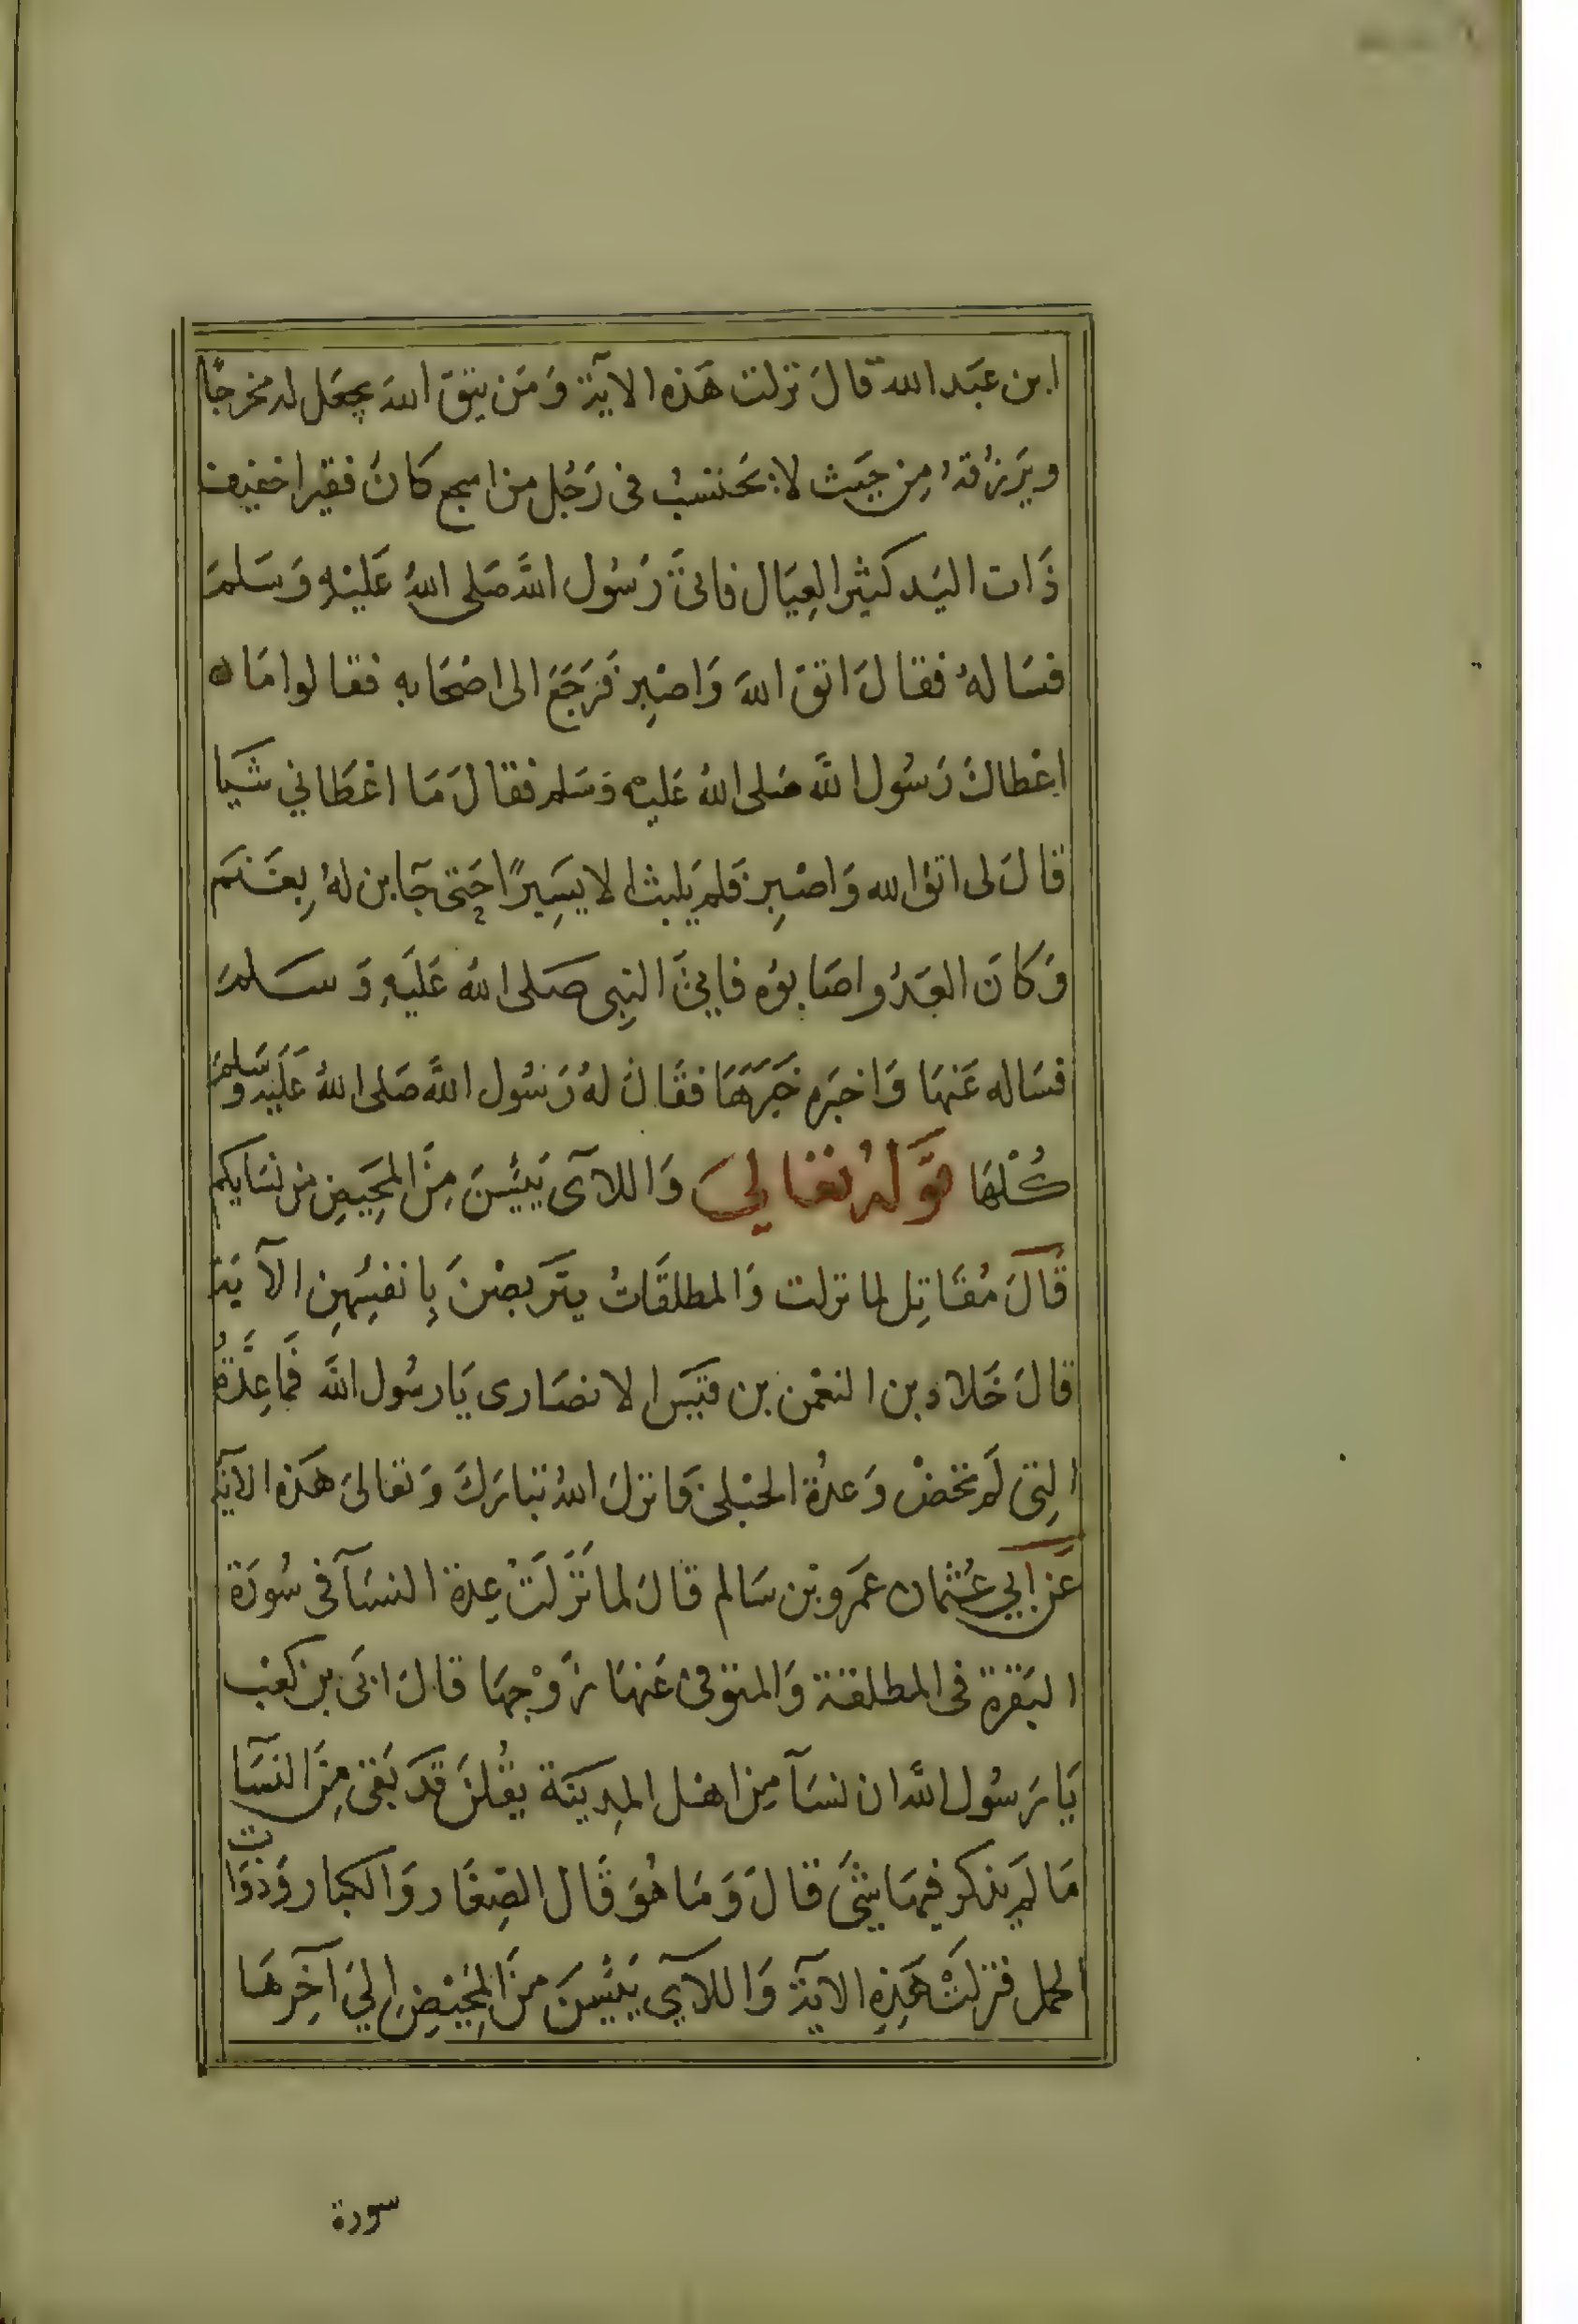 ابن عبد الله قال نزلت هذه الاية ومن يتق الله يجعل له مخرجا
ويرزقه من حيث لا يحتسب فى رجل من اشجع كان فقيرا خفيف
ذات اليد كثير العيال فاتى رسول الله صلى الله عليه وسلم
فساله فقال اتق الله واصبر فرجع الى اصحابه فقالوا ما
اعطاك رسول الله صلى الله عليه وسلم فقال ما اعطاني شيا
قال لى اتق الله واصبر فلم يلبث الا يسيرا حتى جا ابن له بغنم
وكان العدو اصابوه فاتى النبى صلى الله عليه وسلم
فساله عنها واخبره خبرها فقال له رسول الله صلى الله عليه وسلم
كلها قوله تعالى واللآى يئسن من المحيض من نسايكم
قال مقاتل لما نزلت والمطلقات يتربصن بانفسهن الآية
قال خلاد بن النعمن بن قيس الانصارى يا رسول الله فما عدة
التى لم تحض وعدة الحبلى فانزل الله تبارك وتعالى هذه الآية
عن ابي عثمان عمرو بن سالم قال لما نزلت عدة النسآ فى سورة
البقرة فى المطلقة والمتوفى عنها زوجها قال ابى بن كعب
يا رسول الله ان نسآ من اهل المدينة يقلن قد بقى من النسآ
ما لم يذكر فيها شى قال وما هو قال الصغار والكبار وذوات
الحمل فنزلت هذه الآية واللآي يئسن من المحيض الي آخرها
سورة